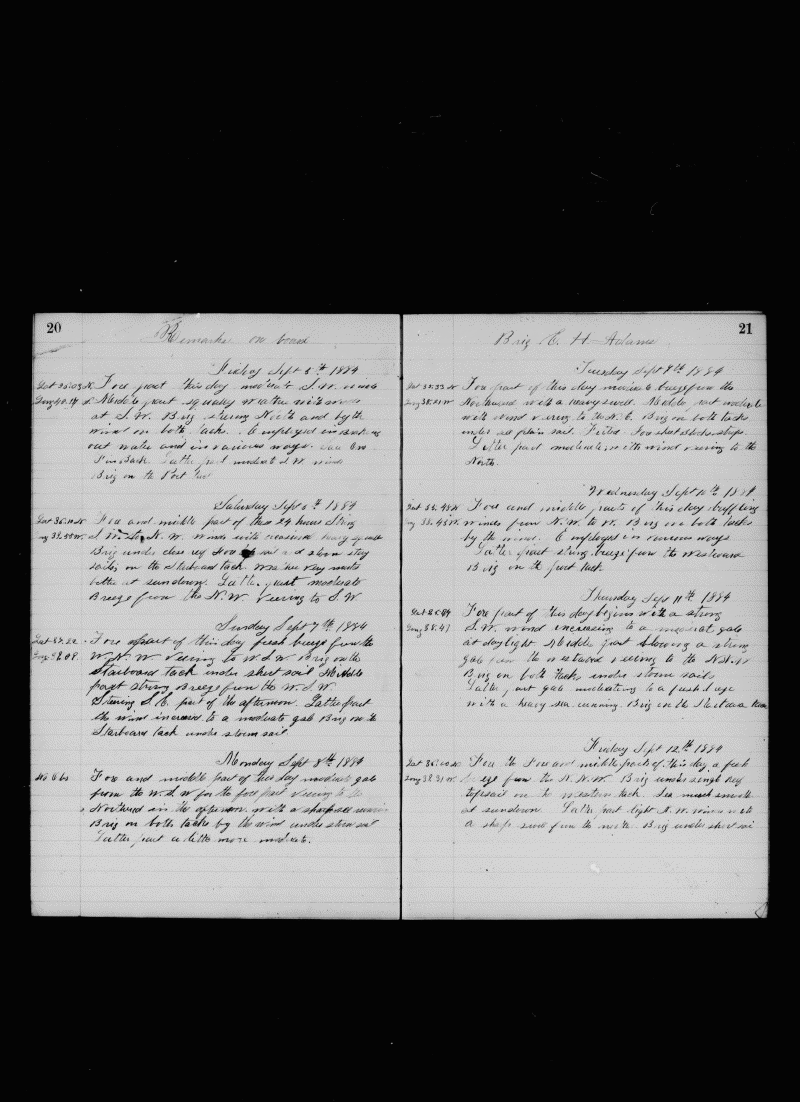 20
Remarks on board
Friday Sept 5th 1884
Lat 36.03 N Fore part this day moderate S.W. winds
Long 40.14 Middle part squally weather with
at S.W. Brig steering North and by the
wind on both tacks. Employed in Breaking
out water and in various ways.
Latter part moderate S.W. winds
Brig on the Port
Saturday Sept 6th 1884
Lat 36.10 N Fore and middle part of this 24 hours Strong
Long 39.55 W. N. W. winds with occasional heavy squalls
Brig under close reef sail and storm stay
sails on the starboard tack. Weather very much
better at sundown. Latter part moderate
Breeze from the N.W. Veering to S.W
Sunday Sept 7th 1884
Lat 37.22 Fore part of this day fresh breeze from the
W.N.W. Veering to W.S.W Brig on the
Starboard tack under short sail Middle
part strong Breeze from the W.S.W.
Steering S.E. part of the afternoon. Latter part
the wind increased to a moderate gale Brig on the
Starboard tack under storm sail
Monday Sept 8th 1884
No Obs Fore and middle part of this day moderate gale
from the W.S.W for the fore part Veering to the
Northward in the afternoon. with a sharp sea running
Brig on both tacks by the wind under storm sail
Latter part a little more moderate.
21
Brig E H Adams
Tuesday Sept 9th 1884
Lat 35.33 N Fore part of this day moderate breeze from the
Long 38.51 W Northward with a heavy swell. Middle part moderate
with wind veering to the N.E. Brig on both tacks
under all plain sail.
Latter part moderate with wind veering to the
North.
Wednesday Sept 10th 1884
Lat 35.49 N Fore and middle parts of this day baffling
Long 38.45 W. winds from N.W. to W. Brig on both tacks
by the wind. Employed in various ways
Latter part strong breeze from the westward
Brig on the port tack
Thursday Sept 11th 1884
Lat 35.44 Fore part of this day begins with a strong
Long 38.47 S.W. wind increasing to a moderate gale
at daylight Middle part blowing a strong
gale from the westward veering to the N.N.W
Brig on both tacks under storm sails
Latter part gale moderating to a fresh breeze
with a heavy sea running. Brig on the Starboard tack
Friday Sept 12th 1884
Lat 36.00 N For the Fore and middle part of this day a fresh
Long 38.31 W. breeze from the N.N.W. Brig under single reef
topsail on the western tack. Sea much smoother
at sundown Latter part light N.W. winds with
a sharp swell from the north. Brig under short sail